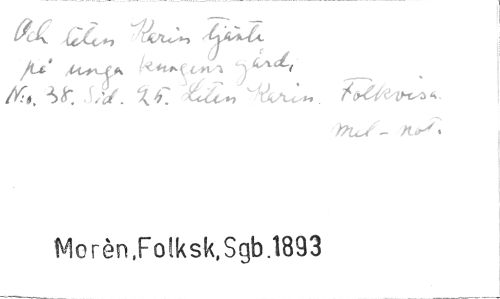 Och liten Karin tjänte
på unga kungens gård,
N:o. 38. Sid. 25. Liten Karin. Folkvisa.
Mel-not.
Morèn,Folksk,Sgb.1893